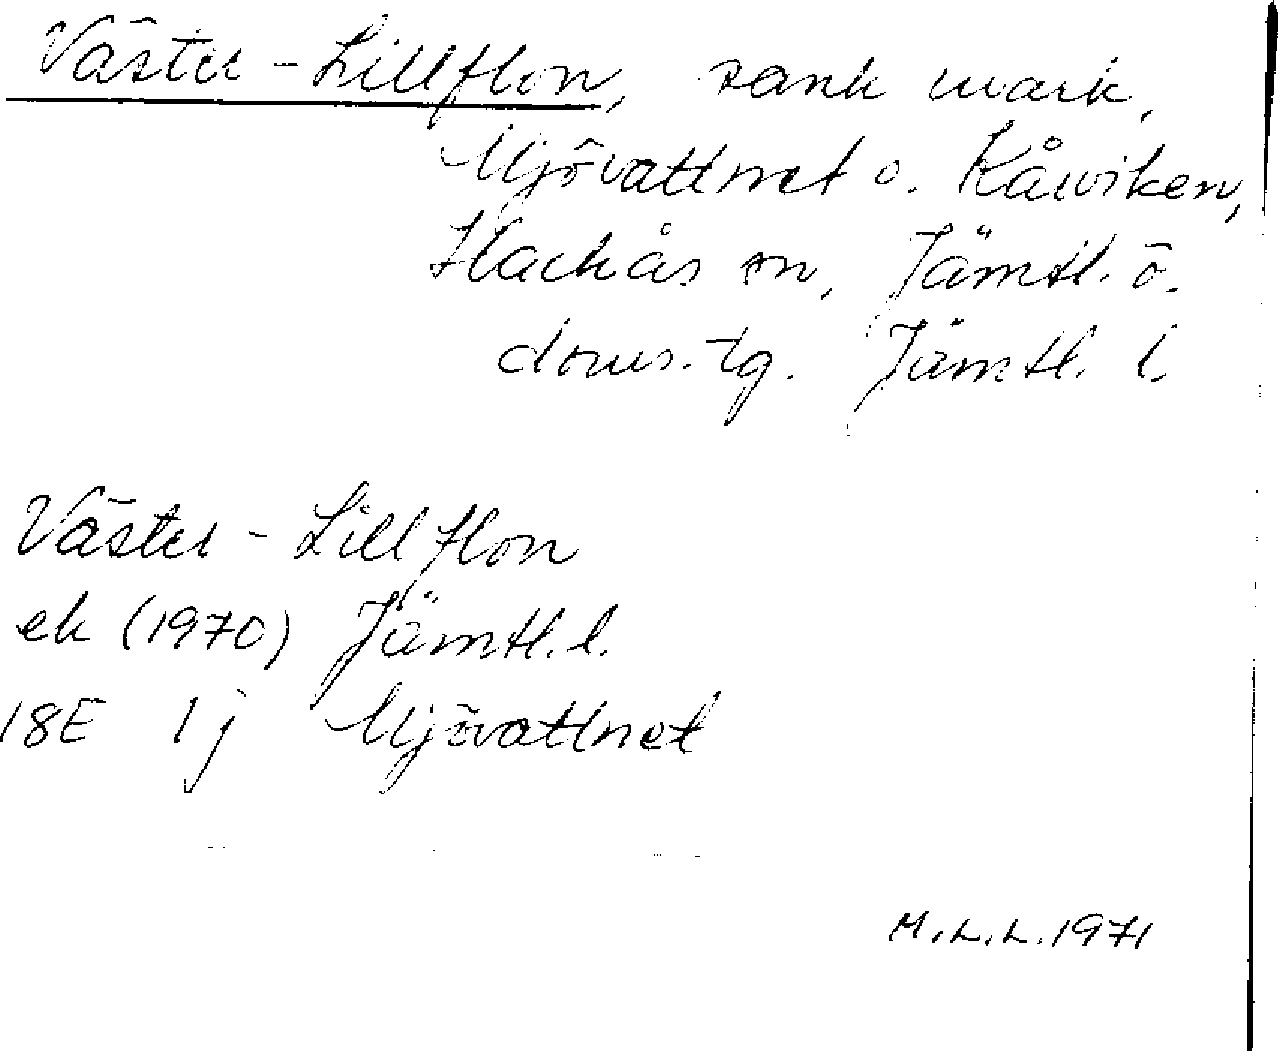 Väster-Lillflon, sank mark,
Mjövattnet o. Kårviken,
Hackås sn, Jämtl. ö.
doms.tg. Jämtl. l.
Väster-Lillflon
ek (1970) Jämtl. l.
18E 1j Mjövattnet
M.L.L. 1971